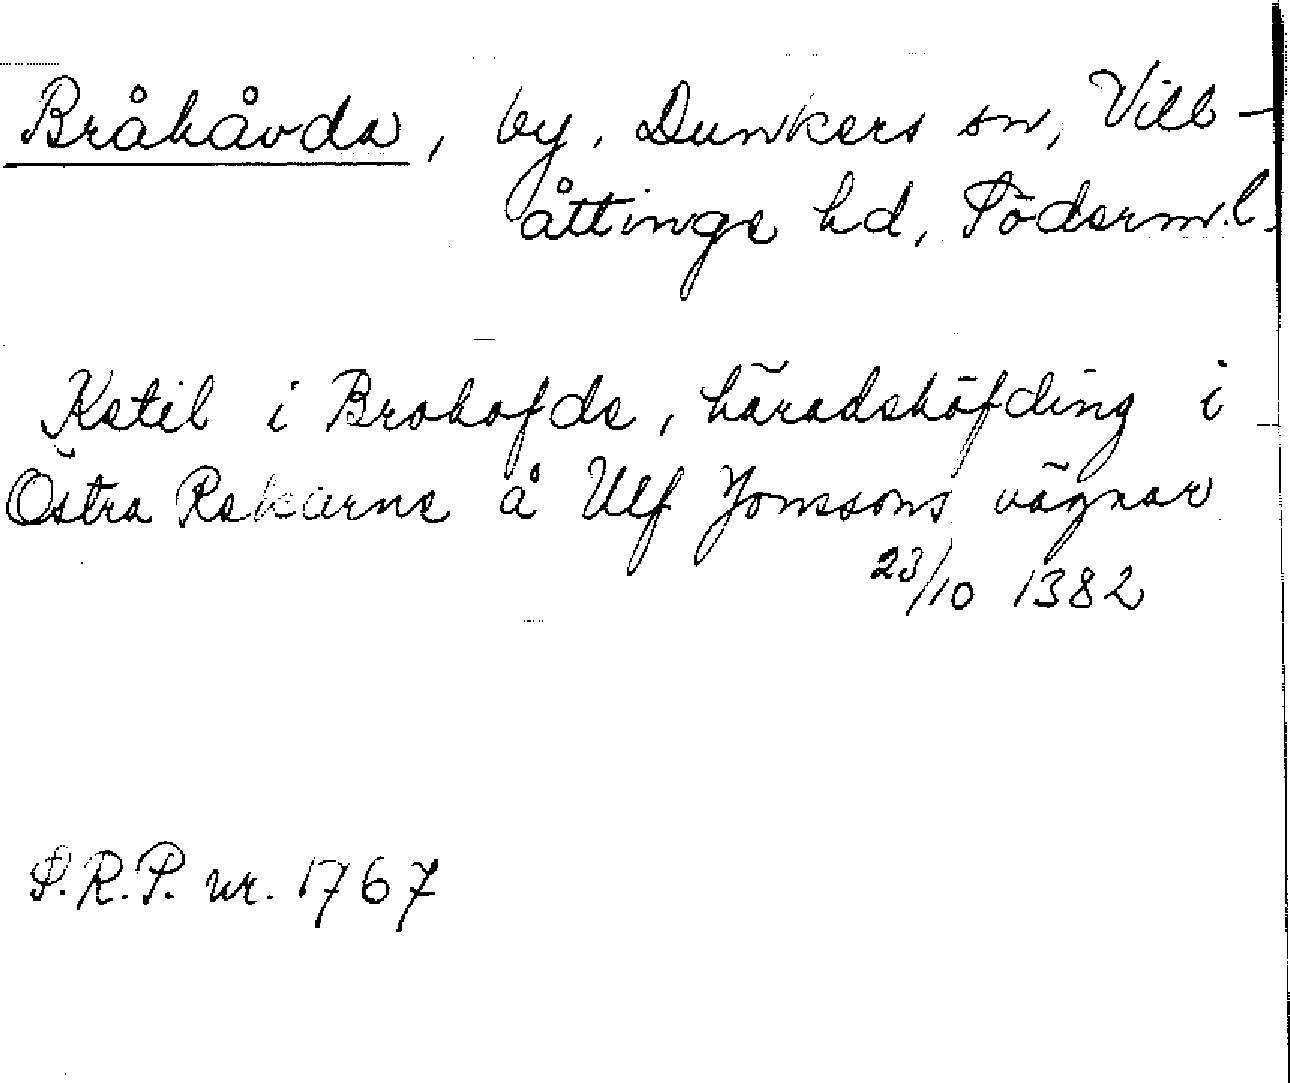 Bråhåvda, by, Dunkers sn, Vill-
åttinge hd, Söderml.
Ketil i Brohofde, häradshöfding i
Östra Rekarne å Ulf Jonssons vägnar
23/10 1382
S.R.P. nr. 1767